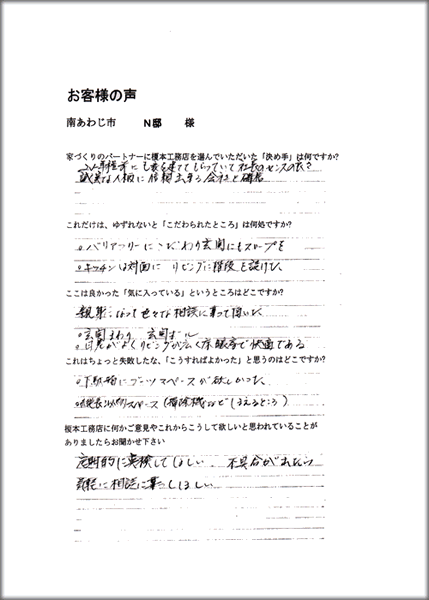 お客様の声
南あわじ市 N邸 様
家づくりのパートナーに榎本工務店を選んでいただいた「決め手」は何ですか?
年程前にも家を建ててもらっていて社長のセンスの良さ
誠実な人柄に信頼出来る会社と確信
これだけは、ゆずれないと「こだわられたところ」は何処ですか?
。バリアフリーにこだわり玄関にもスロープを
。キッチンは対面に リビングに階段を設けた
ここは良かった「気に入っている」というところはどこですか?
親身になって色々な相談に乗って頂いた
。玄関まわり 玄関ホール
。日当がよくリビングが広く床暖房で快適である
これはちょっと失敗したな、「こうすればよかった」と思うのはどこですか?
。下駄箱にブーツスペースが欲しかった
スペース(掃除機などしまえるところ)
榎本工務店に何かご意見やこれからこうして欲しいと思われていることが
ありましたらお聞かせ下さい
定期的に点検してほしい 不具合があれば
気軽に相談に乗ってほしい